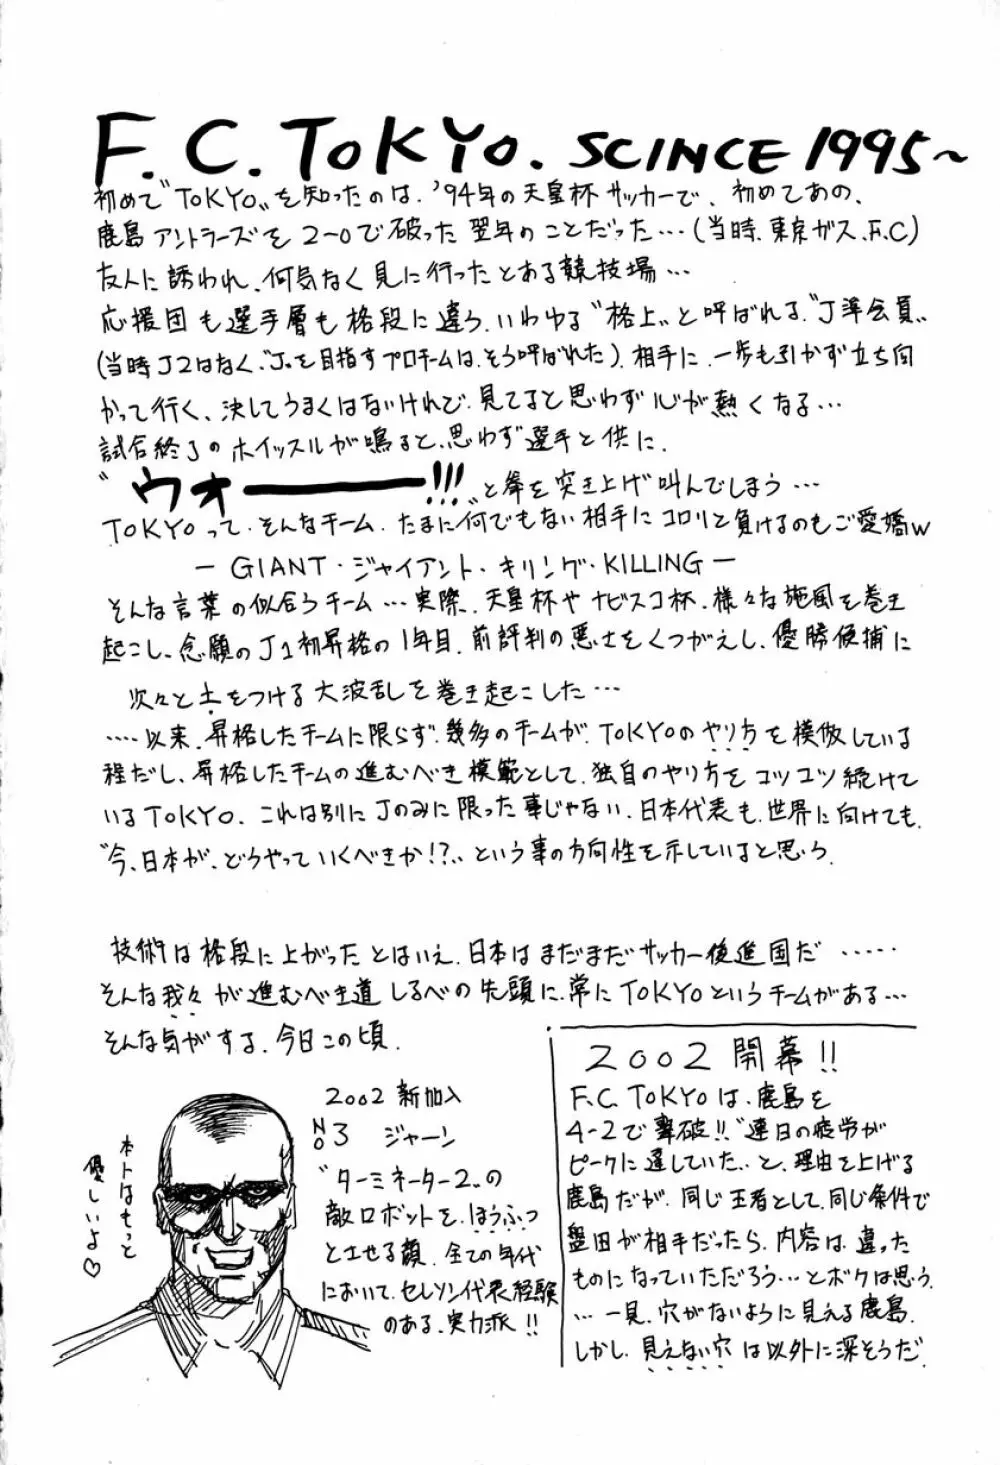 F.C.TOKYO. SCINCE 1995〜
初めて"TOKYO〟を知ったのは、'94年の天皇杯サッカーで、初めてあの、
鹿島アントラーズを2-0で破った翌年のことだった…(当時、東京ガス、F.C)
友人に誘われ、何気なく見に行ったとある競技場…
応援団も選手層も格段に違う、いわゆる"格上〟と呼ばれる"J準会員〟
(当時J2はなく、"J〟を目指すプロチームは、そう呼ばれた)、相手に、一歩も引かず立ち向
かって行く、決してうまくはないけれど、見てると思わず心が熱くなる…
試合終了のホイッスルが鳴ると、思わず選手と供に、
"ウォーーー!!!〟と拳を突き上げ叫んでしまう…
TOKYOって、そんなチーム、たまに何でもない相手にコロリと負けるのもご愛嬌w
— GIANT・ジャイアント・キリング・KILLING —
そんな言葉の似合うチーム…実際、天皇杯やナビスコ杯、様々な旋風を巻き
起こし、念願のJ1初昇格の1年目、前評判の悪さをくつがえし、優勝候補に
次々と土をつける大波乱を巻き起こした…
‥‥以来、昇格したチームに限らず、幾多のチームが、TOKYOのやり方を模倣している
程だし、昇格したチームの進むべき模範として、独自のやり方をコツコツ続けて
いるTOKYO、これは別にJのみに限った事じゃない、日本代表も、世界に向けても、
"今、日本が、どうやっていくべきか!?〟という事の方向性を示していると思う、
技術は格段に上がったとはいえ、日本はまだまだサッカー後進国だ‥‥‥
そんな我々が進むべき道しるべの先頭に、常にTOKYOというチームがある…
そんな気がする、今日この頃、
2002 開幕!!
F.C.TOKYOは、鹿島を
4-2で撃破!!"連日の疲労が
ピークに達していた〟と、理由を上げる
鹿島だが、同じ王者として、同じ条件で
磐田が相手だったら、内容は、違った
ものになっていただろう…とボクは思う、
…一見、穴がないように見える鹿島、
しかし、見えない穴は以外に深そうだ、
2002 新加入
No 3 ジャーン
"ターミネーター2〟の
敵ロボットを、ほうふつ
とさせる顔、全ての年代
において、セレソン代表経験
のある、実力派!!
ホントはもっと
優しいよ♡